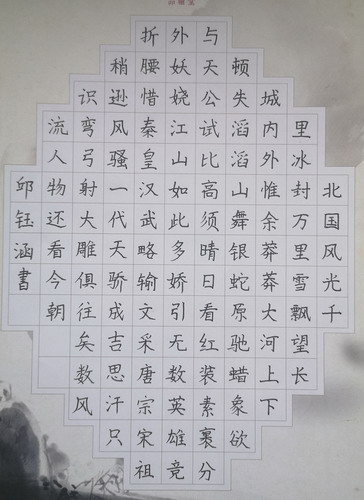 北国风光千
里冰封万里雪飘望长
城内外惟余莽莽大河上下
顿失滔滔山舞银蛇原驰蜡象欲
与天公试比高须晴日看红装素裹分
外妖娆江山如此多娇引无数英雄竞
折腰惜秦皇汉武略输文采唐宗宋祖
稍逊风骚一代天骄成吉思汗只
识弯弓射大雕俱往矣数风
流人物还看今朝
邱钰涵书